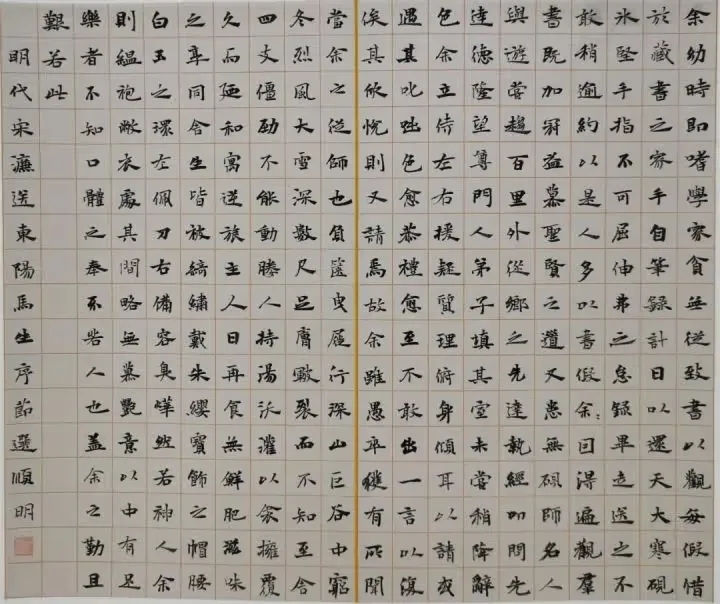 余幼時即嗜學家貧無從致書以觀每假借
於藏書之家手自筆錄計日以還天大寒硯
冰堅手指不可屈伸弗之怠錄畢走送之不
敢稍逾約以是人多以書假余:因得遍觀羣
書既加冠益慕聖賢之道又患無碩師名人
與遊嘗趨百里外從鄉之先達執經叩問先
達德隆望尊門人弟子填其室未嘗稍降辭
色余立侍左右援疑質理俯身傾耳以請或
遇其叱咄色愈恭禮愈至不敢出一言以復
俟其欣悅則又請焉故余雖愚卒獲有所聞
當余之從師也負篋曳屣行深山巨谷中窮
冬烈風大雪深數尺足膚皸裂而不知至舍
四支僵勁不能動媵人持湯沃灌以衾擁覆
久而廼和寓逆旅主人日再食無鮮肥滋味
之享同舍生皆被綺繡戴朱纓寶飾之帽腰
白玉之環左佩刀右備容臭燁然若神人余
則縕袍敝衣處其間略無慕艷意以中有足
樂者不知口體之奉不若人也蓋余之勤且
艱若此
明代宋濂送東陽馬生序節選順明